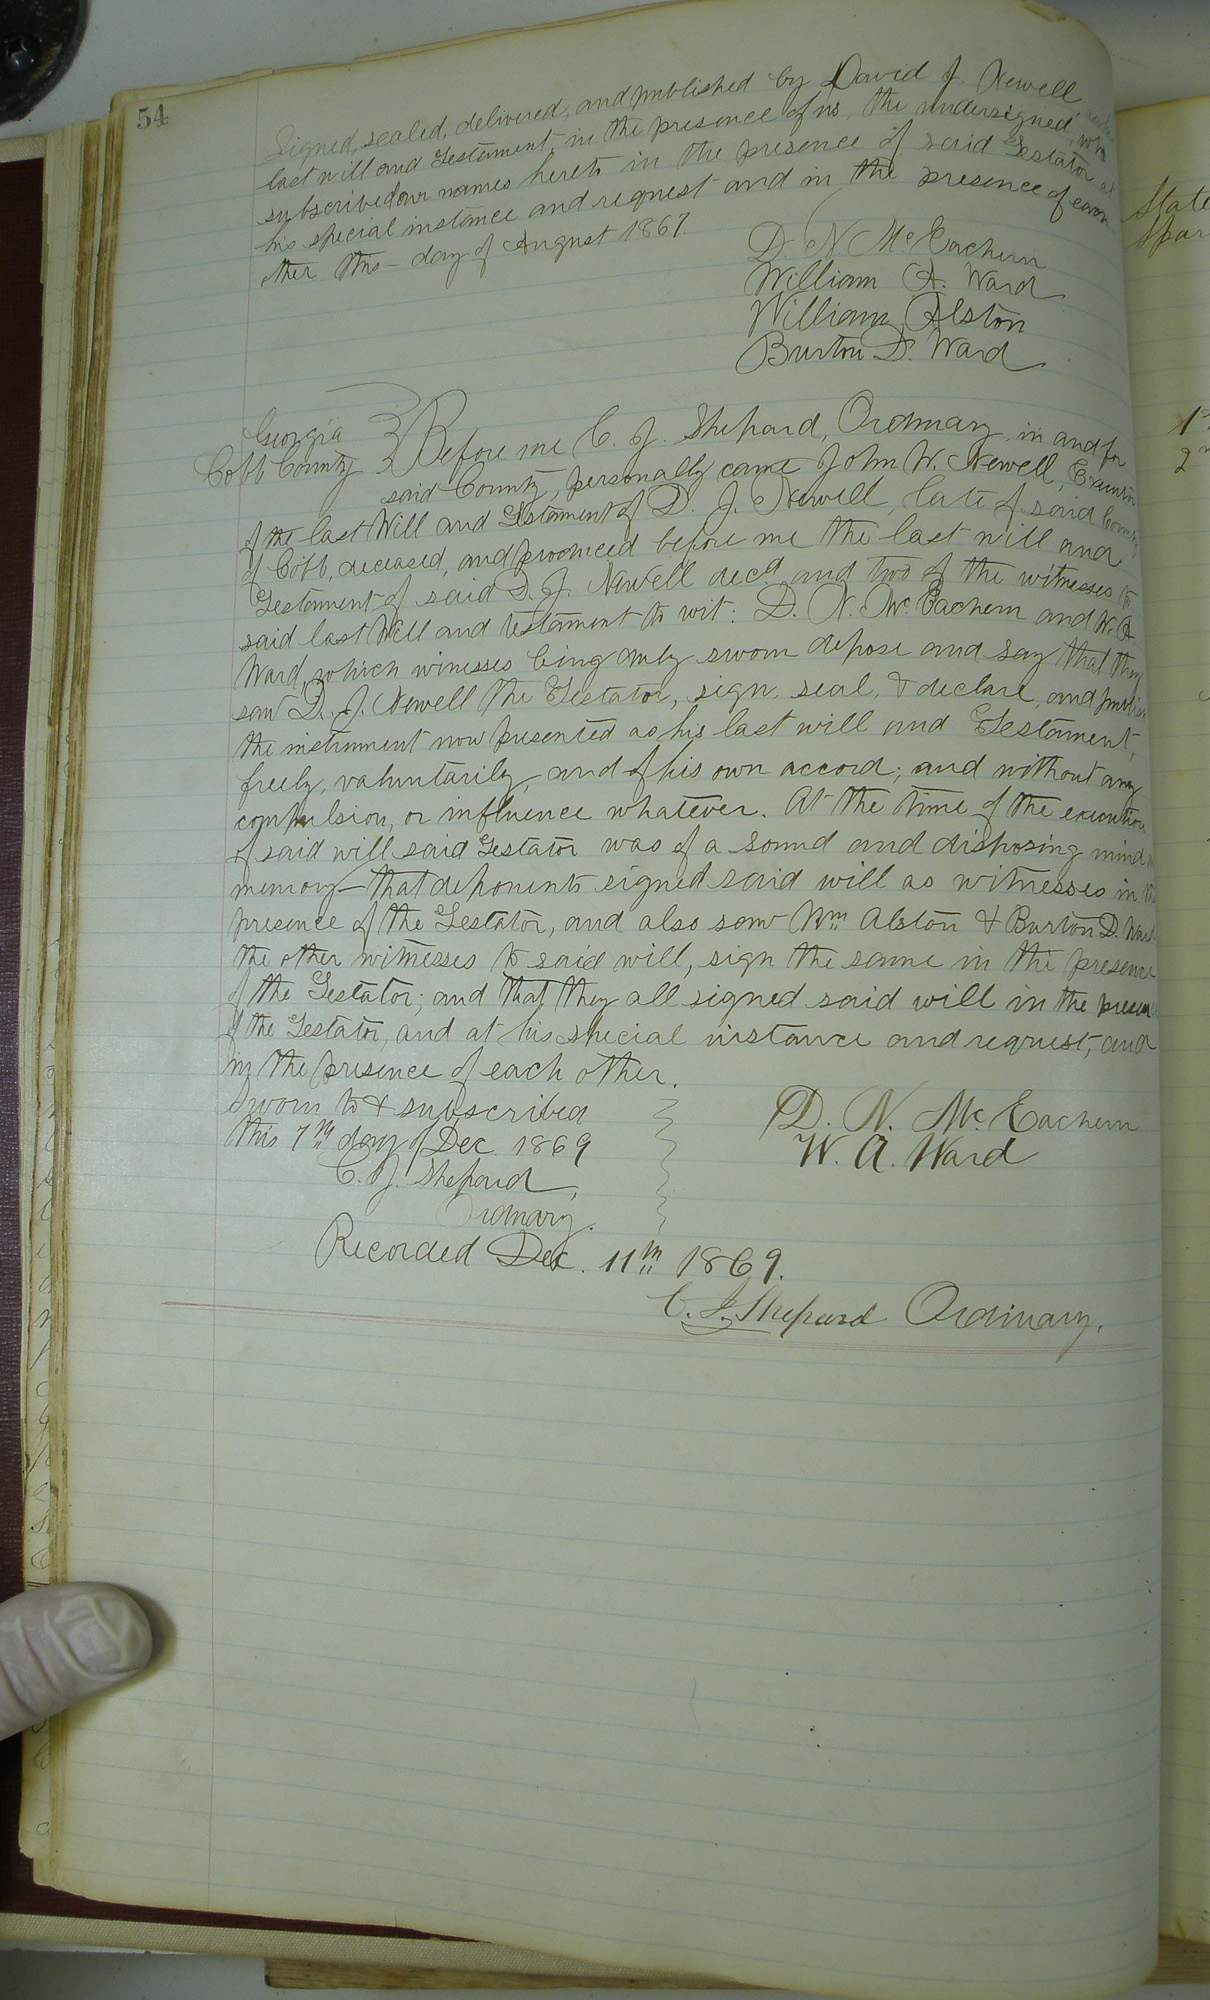 54
Signed, sealed, delivered, and published by David J. Newell as his
last will and Testament, in the presence of us, the undersigned, who
subscribed our names hereto in the presence of said Testator at
his special instance and request and in the presence of each
other this - day of August 1867.
D. N. McEachern
William A. Ward
William Alston
Burton D. Ward
Georgia
Cobb County
Before me C. J. Shepard, Ordinary in and for
said County, personally came John W. Newell, Executor
of the last Will and Testament of D. J. Newell, late of said County
of Cobb, deceased, and produced before me the last will and
Testament of said D. J. Newell decd and two of the witnesses to
said last Will and testament to wit: D. N. McEachern and W. A.
Ward, which winesses being duly sworn depose and say that they
saw D. J. Newell the Testator, sign, seal, & declare, and publish
the instrument now presented as his last will and Testament,
freely, voluntarily, and of his own accord; and without any
compulsion, or influence whatever. At the time of the execution
of said will said Testator was of a sound and disposing mind
memory - that deponents signed said will as witnesses in the
presence of the Testator, and also saw Wm Alston & Burton D. Ward
the other witnesses to said will, sign the same in the presence
of the Testator; and that they all signed said will in the presence
of the Testator, and at his special instance and request, and
in the presence of each other.
Sworn to & subscribed
this 7th day of Dec. 1869
C. J. Shepard,
Ordinary.
D. N. McEachern
W. A. Ward
Recorded Dec. 11th 1869.
C. J. Shepard Ordinary.
State
Spar
1st
2n